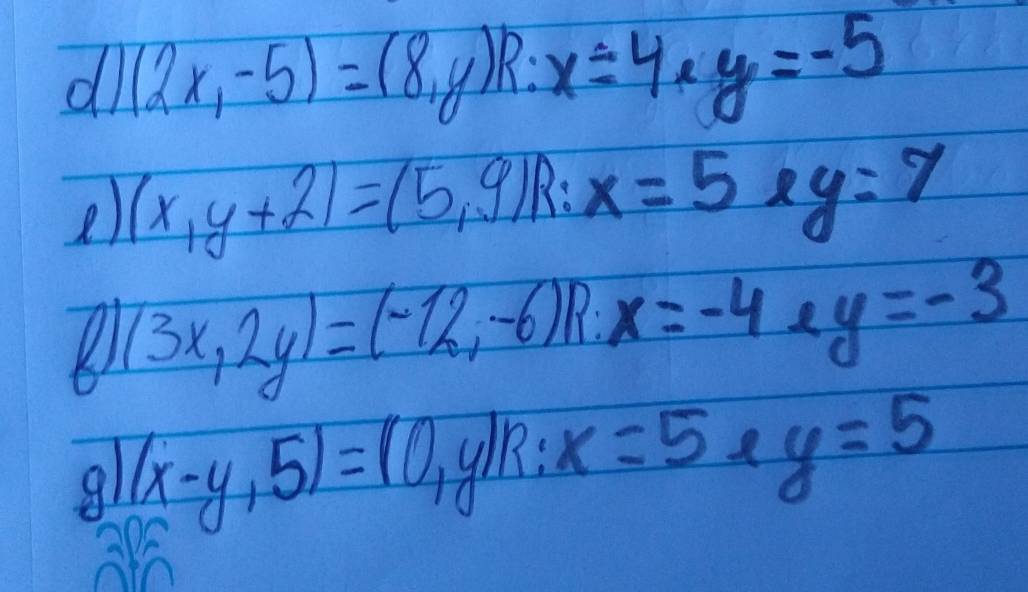 d)(2x,-5)=(8,y)R:x=4 e y=-5
e)(x,y+2)=(5,9)R:x=5 e y=7
f)(3x,2y)=(-12,-6)R:x=-4 e y=-3
g)(x-y,5)=(0,y)R:x=5 e y=5